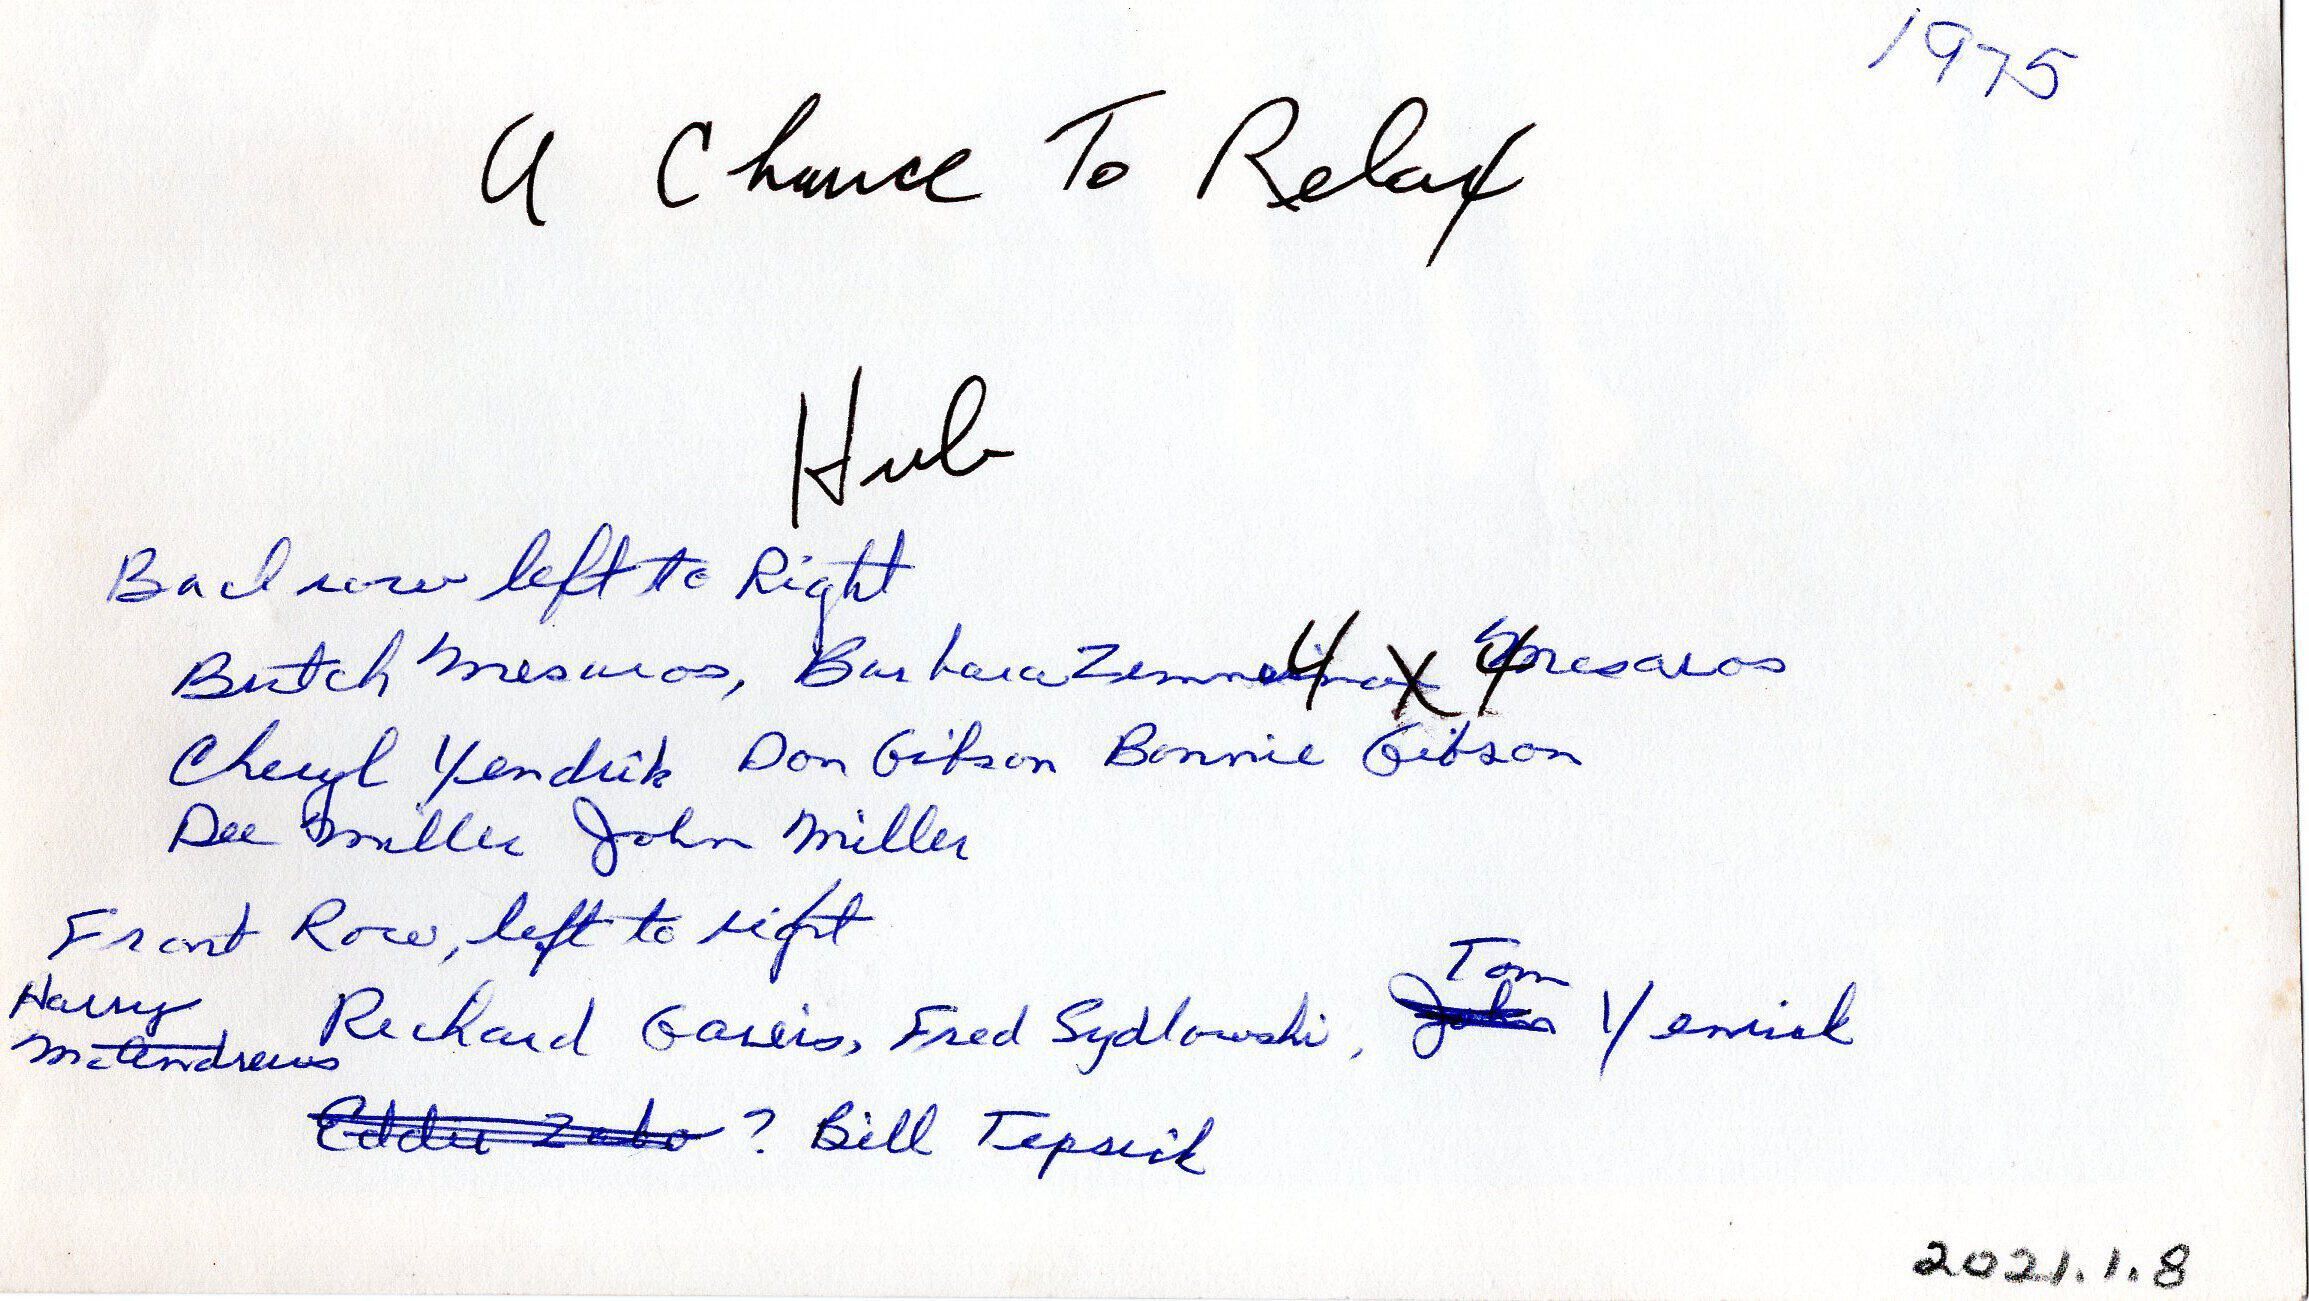 1975
A Chance To Relax
Hub
Back row left to Right
Butch Mesaros, Barbara Mesaros
4 x 4
Cheryl Yendrik Don Gibson Bonnie Gibson
Dee Miller John Miller
Front Row, left to right
Harry McAndrews
Richard Gareis, Fred Sydlowski, John Tom Yenrick
Eddie Zabo ? Bill Tepsick
2021.1.8